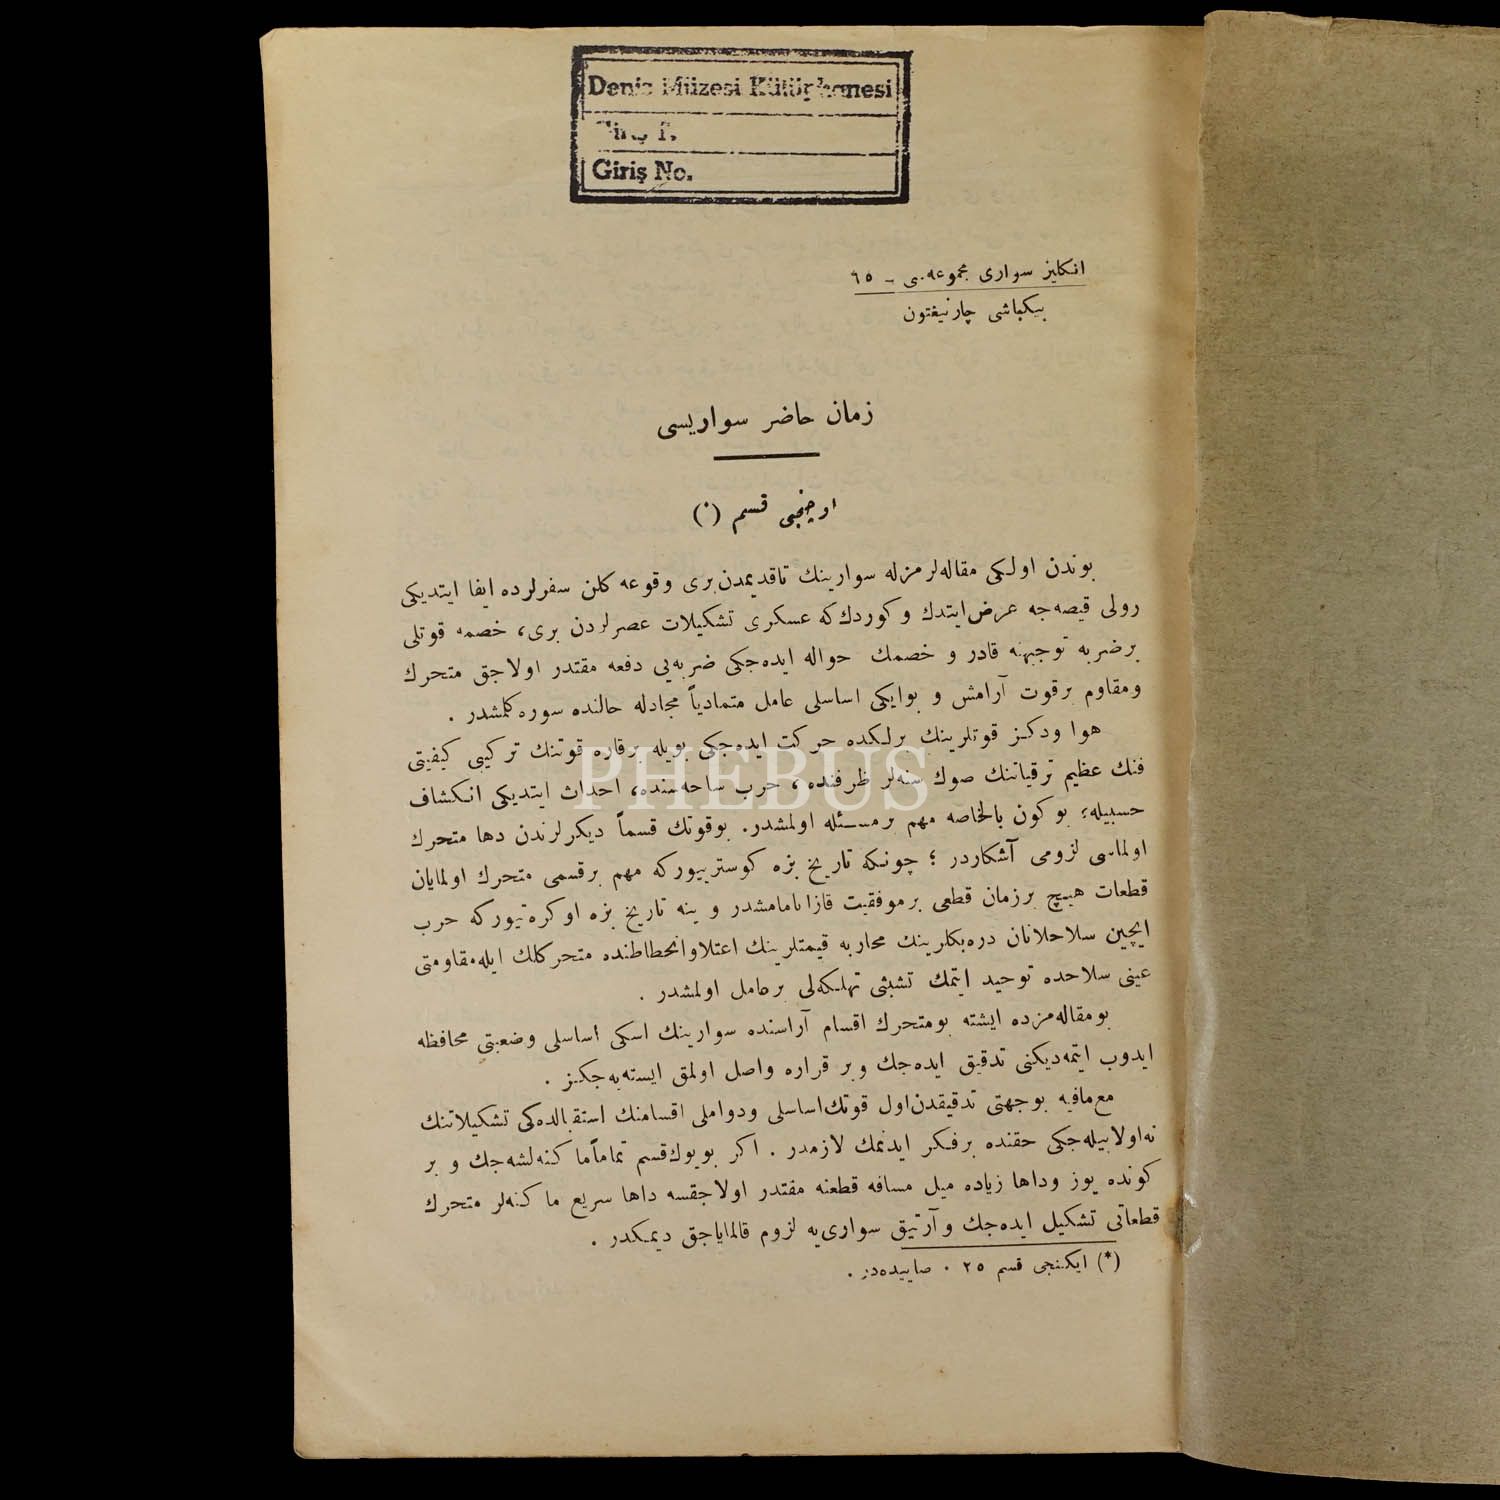 Deniz Müzesi Kütüphanesi
Giriş No.
انكليز سواری مجموعه‌سی – ٦٥
بيكباشی چارنيغتون
زمان حاضر سواريسی
اوچنجی قسم (*)
بوندن اولكی مقاله‌لرمزله سوارينك تاقديمدن بری وقوعه كلن سفرلرده ايفا ايتديكی
رولی قيصه‌جه عرض ايتدك و كوردك كه عسكری تشكيلات عصرلردن بری، خصمه قوتلی
بر ضربه توجيهنه قادر و خصمك حواله ايده‌جكی ضربه‌یی دفعه مقتدر اولاجق متحرك
ومقاوم بر قوت آرامش و بوايكی اساسلی عامل متمادياً مجادله حالنده سوره‌كلمشدر .
هوا ودكز قوتلرينك برلكده حركت ايده‌جكی بويله برقاره قوتنك تركيبی كيفيتی
فنك عظيم ترقياتنك صوك سنه‌لر ظرفنده، حرب ساحه‌سنده، احداث ايتديكی انكشاف
حسبيله؛ بوكون بالخاصه مهم برمسئله اولمشدر. بوقوتك قسماً ديكرلرندن دها متحرك
اولماسی لزومی آشكاردر ؛ چونكه تاريخ بزه كوستريبوركه مهم برقسمی متحرك اولمايان
قطعات هيچ برزمان قطعی برموفقيت قازانامامشدر و ينه تاريخ بزه اوكره‌تيوركه حرب
ايچين سلاحلانان دره‌بكلرينك محاربه قيمتلرينك اعتلاوانحطاطنده متحركلك ايله‌مقاومتی
عينی سلاحده توحيد ايتمك تشبثی تهلكه‌لی برعامل اولمشدر .
بومقاله‌مزده ايشته بومتحرك اقسام آراسنده سوارينك اسكی اساسلی وضعيتی محافظه
ايدوب ايتمه‌ديكنی تدقيق ايده‌جك وبر قراره واصل اولمق ايسته‌يه‌جكز .
مع‌مافيه بوجهتی تدقيقدن‌اول قوتك‌اساسلی ودواملی اقسامنك استقبالده‌كی تشكيلاتنك
نه‌اولابيله‌جكی حقنده برفكر ايدنمك لازمدر . اكر بويوك‌قسم تماماًماكنه‌لشه‌جك و بر
كونده يوز وداها زياده ميل مسافه قطعنه مقتدر اولاجقسه داها سريع ماكنه‌لر متحرك
قطعاتی تشكيل ايده‌جك و آرتيق سواری‌يه لزوم قالماياجق ديمكدر .
(*) ايكنجی قسم ٢٥ . صاييده‌در .
PHEBUS